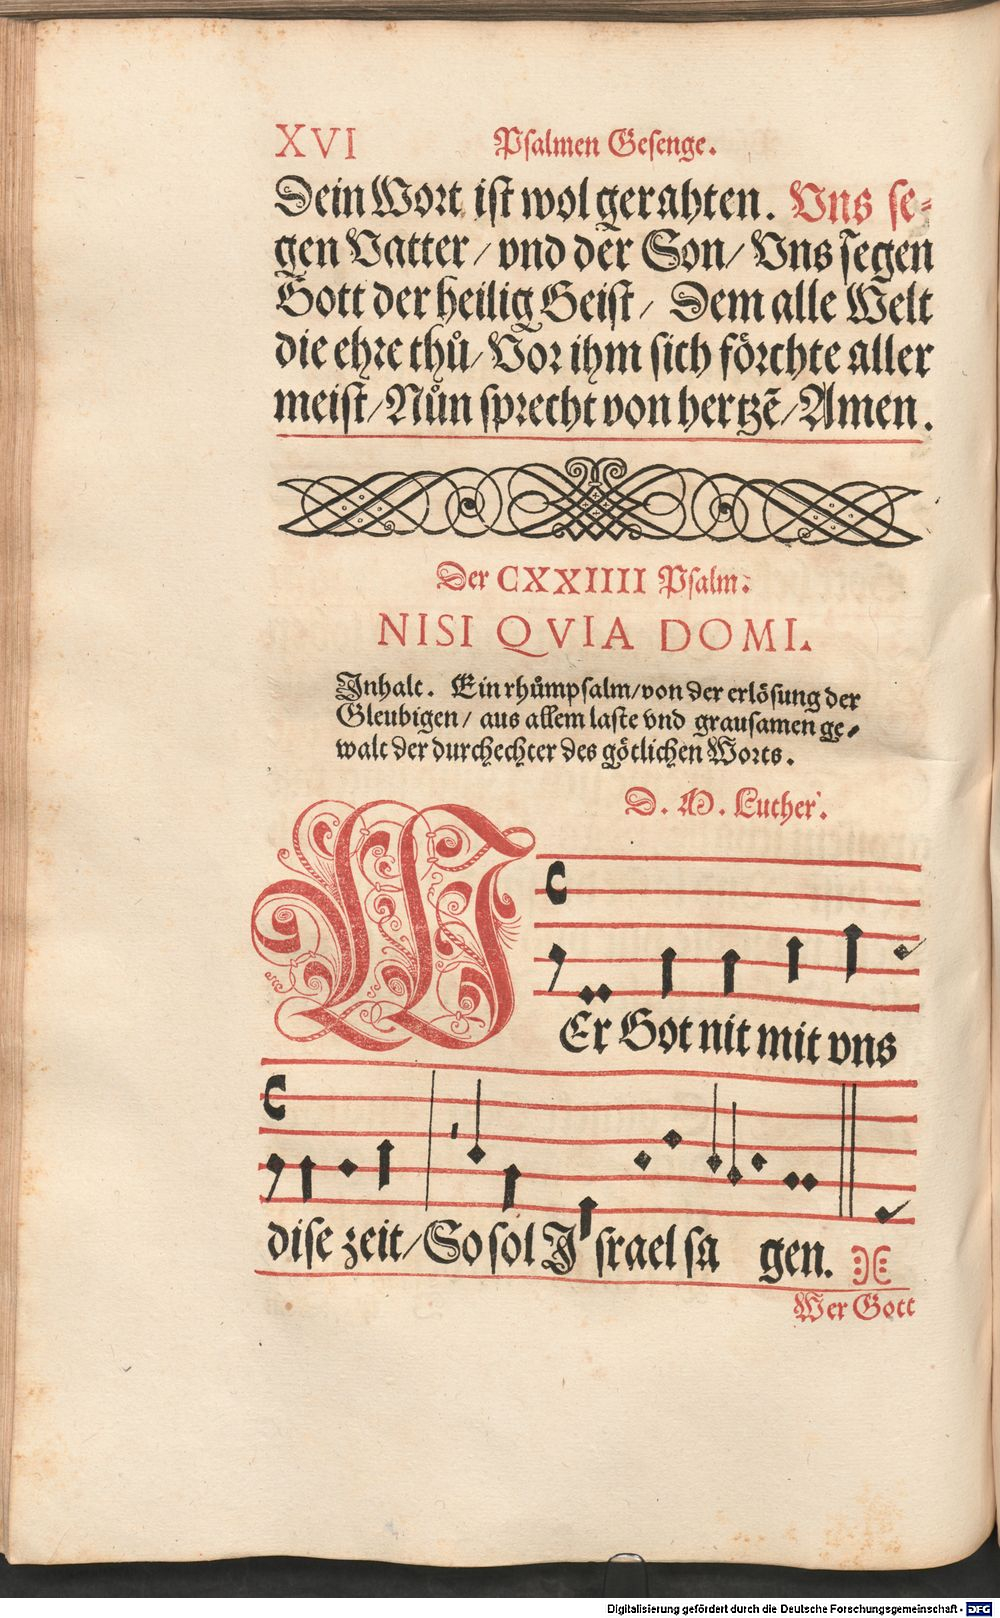 XVI Psalmen Gesenge.
Dein Wort ist wol gerahten. Vns se-
gen Vatter/ vnd der Son/ Vns segen
Gott der heilig Geist/ Dem alle Welt
die ehre thů/ Vor ihm sich förchte aller
meist/ Nůn sprecht von hertzẽ/ Amen.
Der CXXIIII Psalm.
NISI QVIA DOMI.
Inhalt. Ein rhůmpsalm/von der erlösung der
Gleubigen/ aus allem laste vnd grausamen ge-
walt der durchechter des götlichen Worts.
D. M. Luther.
WEr Got nit mit vns
dise zeit/ So sol Israel sa gen.
Wer Gott
Digitalisierung gefördert durch die Deutsche Forschungsgemeinschaft - DFG